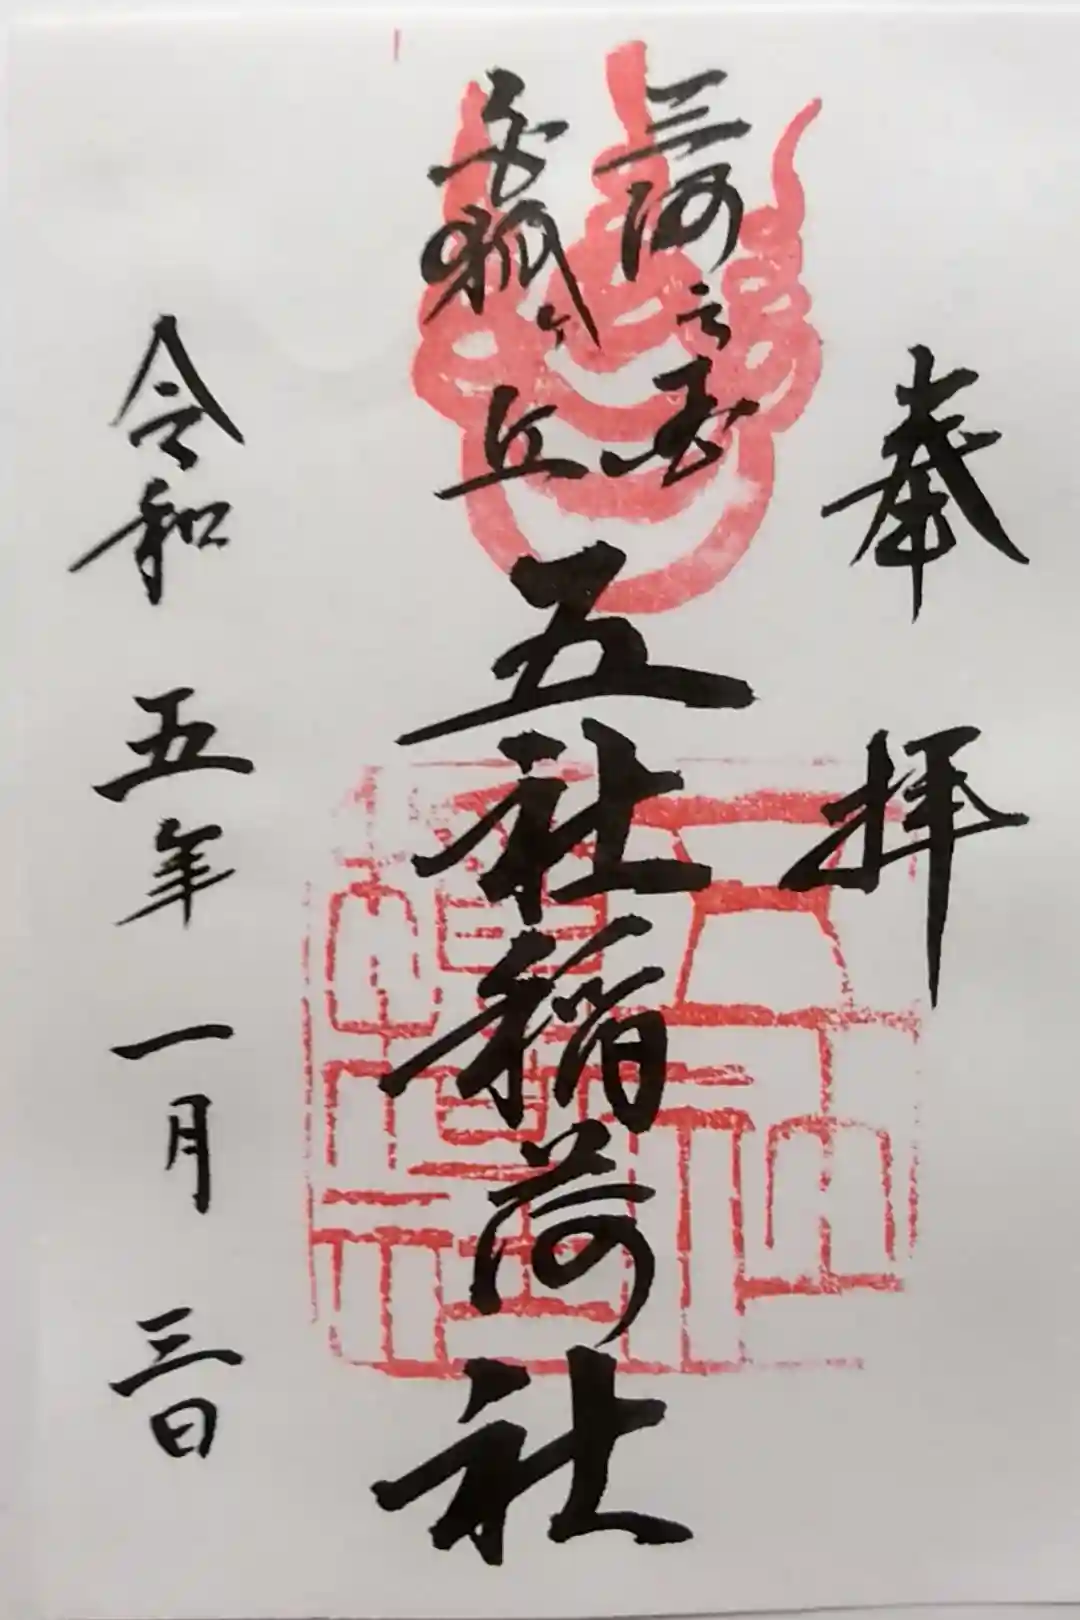 奉拝
三河之国
狐ヶ丘
五社稲荷社
令和五年一月三日